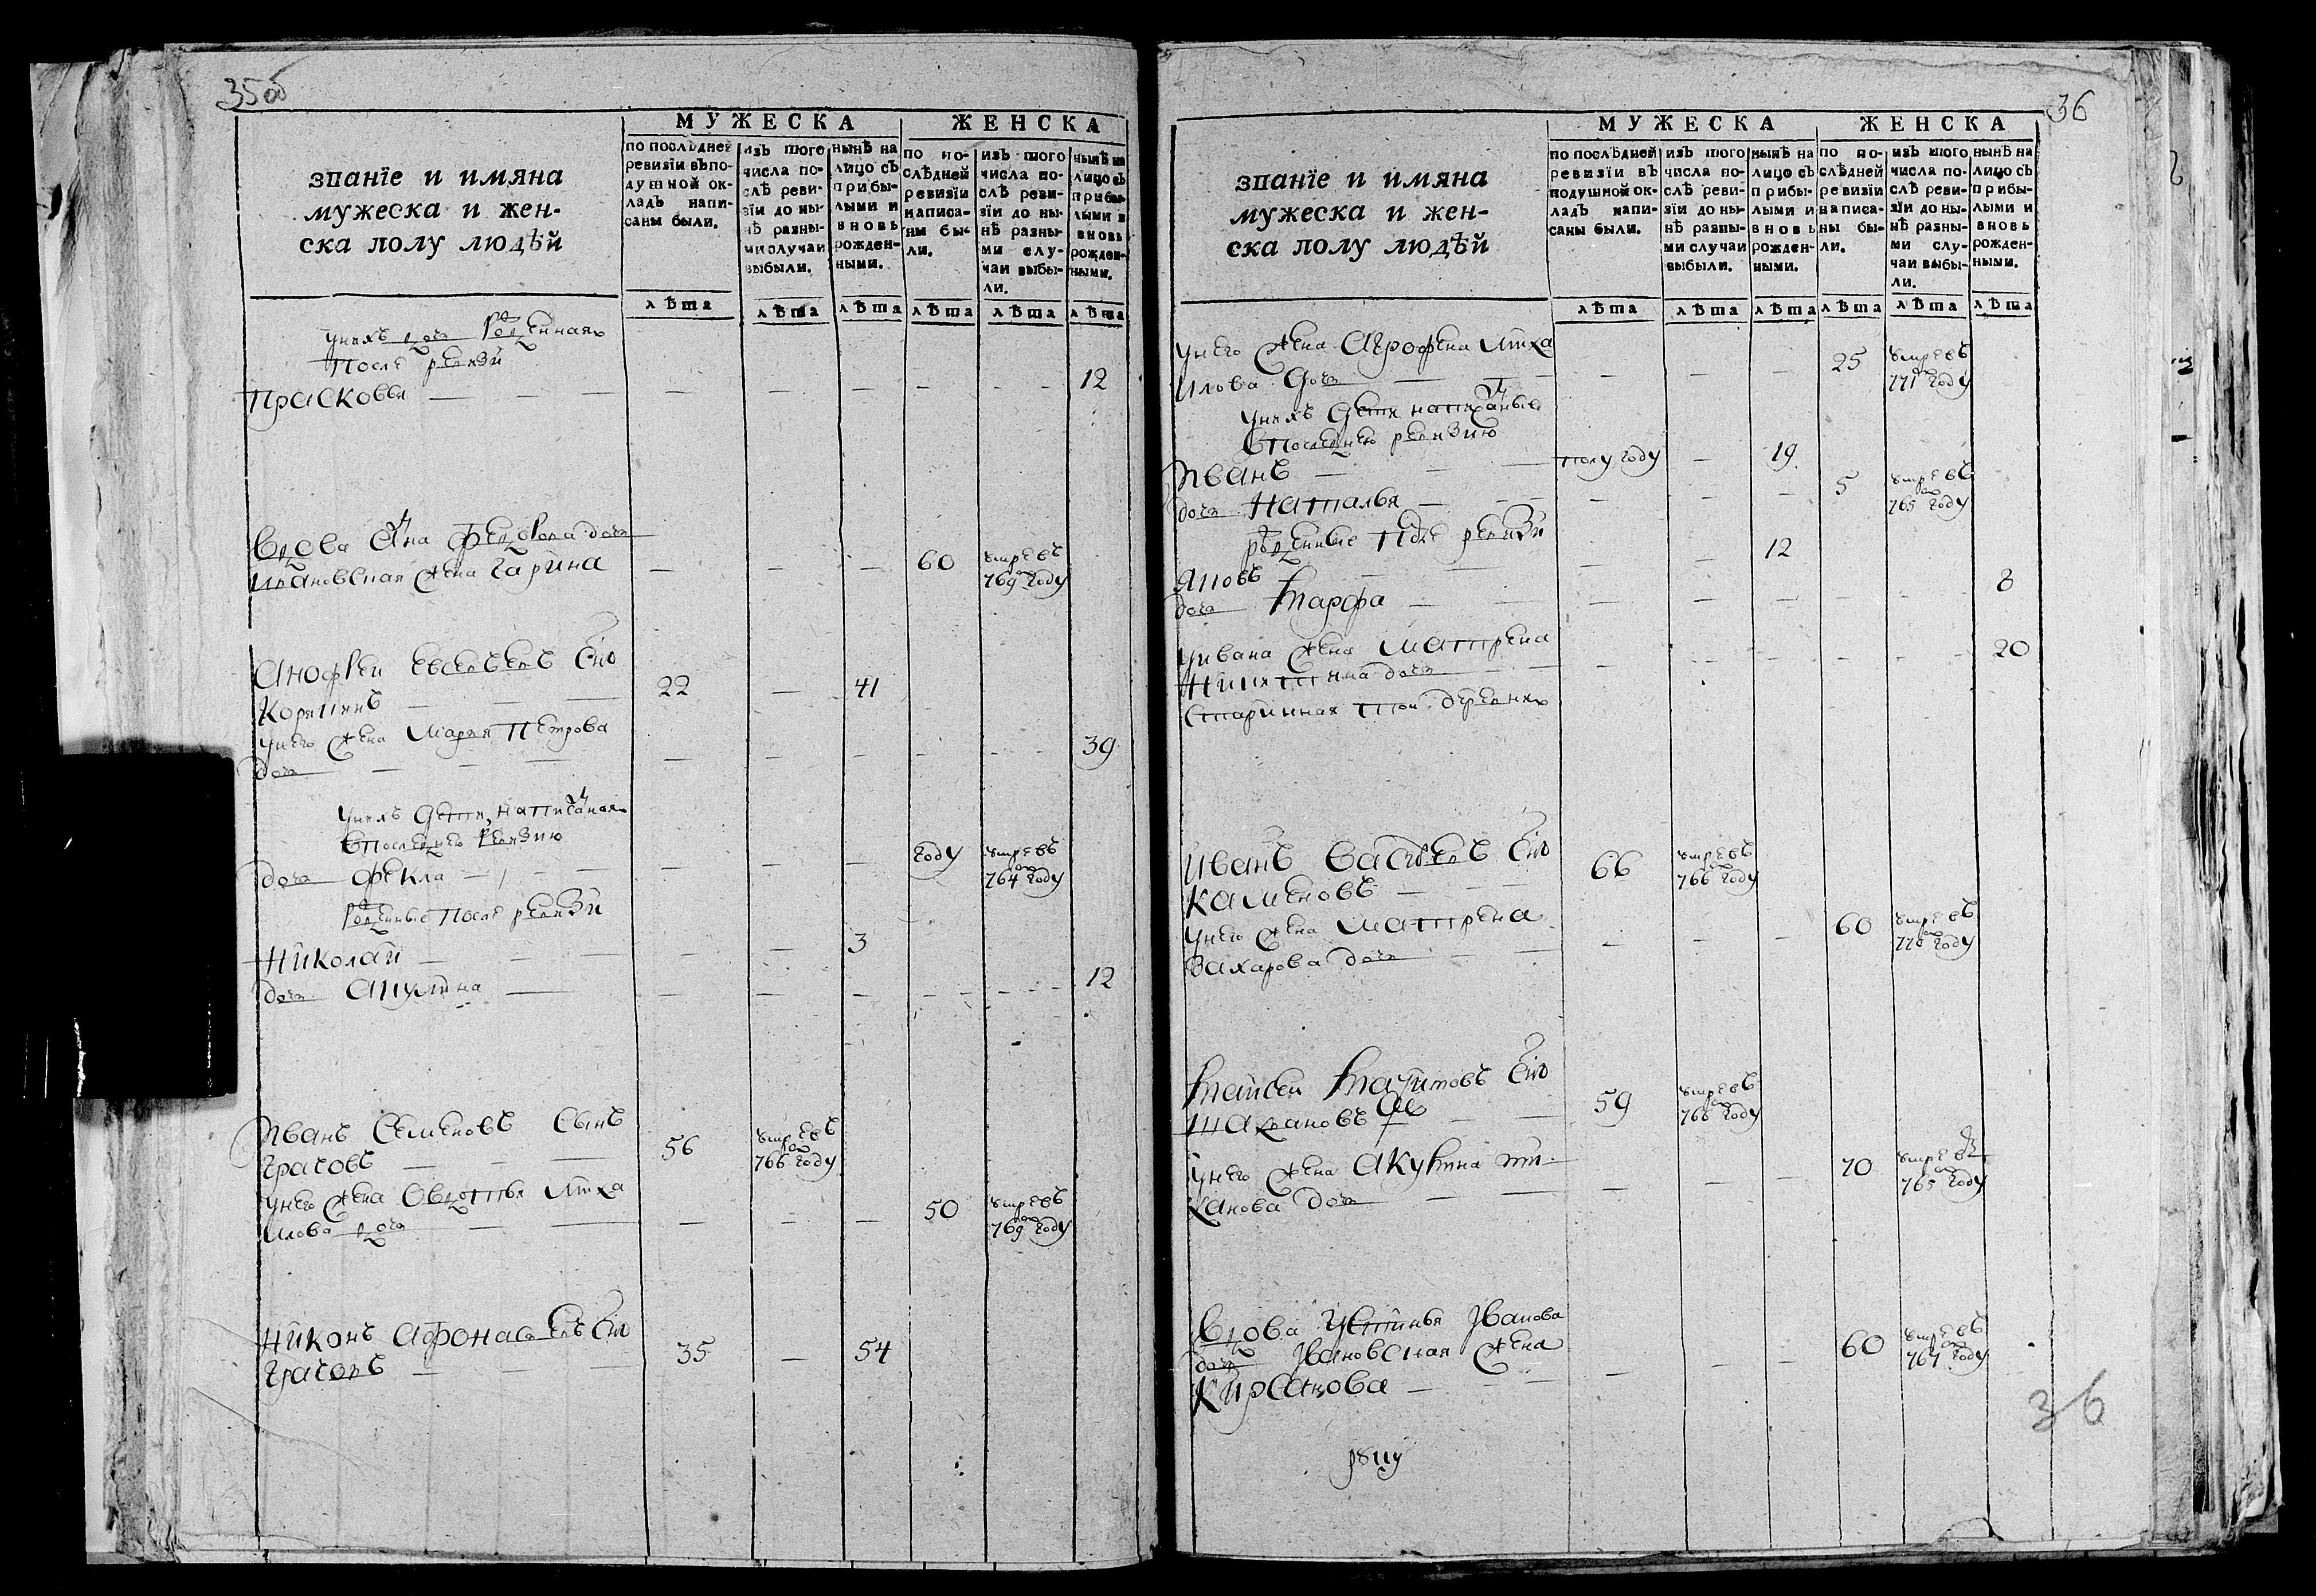 35 об
МУЖЕСКА ЖЕНСКА
званїе и имяна
мужеска и жен-
ска полу людѣй
по послѣдней
ревизїи въ по-
душной ок-
ладъ напи-
саны были.
изъ того
числа по-
слѣ реви-
зїи до ны-
нѣ разны-
ми случаи
выбыли.
нынѣ на
лицо съ
прибы-
лыми и
вновь
рожден-
ными.
по по-
слѣдней
ревизїи
написа-
ны бы-
ли.
изъ того
числа по-
слѣ реви-
зїи до ны-
нѣ разны-
ми слу-
чаи выбы-
ли.
нынѣ на
лицо съ
прибы-
лыми и
вновь
рожден-
ными.
лѣта лѣта лѣта лѣта лѣта лѣта
унихъ дочь рожденная
после ревизи
Прасковья — — — — — — — — 12
Вдова Анна Федорова дочь
Ивановская жена Гарина — — — 60 умре въ 769 году
Анофреи Евсевьевъ сынъ
22 — 41
у него жена Марья Петрова
дочь — — — — — — — 39
унихъ дети написаная
в последнею ревизию
дочь Фекла — — — — году умре въ 764 году
рожденные после ревизи
Николаи — — — — — 3
дочь Акулина — — — — — — 12
Иванъ Семеновъ сынъ
Грачовъ — — — 56 умре въ 766 году
у него жена Овдотья Миха
илова дочь — — — — — 50 умре въ 769 году
Никонъ Афонасьевъ сынъ
Грачовъ — — 35 — 54
36
МУЖЕСКА ЖЕНСКА
званїе и имяна
мужеска и жен-
ска полу людѣй
по послѣдней
ревизїи въ
подушной ок-
ладъ напи-
саны были.
изъ того
числа по-
слѣ реви-
зїи до ны-
нѣ разны-
ми случаи
выбыли.
нынѣ на
лицо съ
прибы-
лыми и
вновь
рожден-
ными.
по по-
слѣдней
ревизїи
написа-
ны бы-
ли.
изъ того
числа по-
слѣ реви-
зїи до ны-
нѣ разны-
ми слу-
чаи выбы-
ли.
нынѣ на
лицо съ
прибы-
лыми и
вновь
рожден-
ными.
лѣта лѣта лѣта лѣта лѣта лѣта
у него жена Агрофена Миха
илова дочь — — — — — 25 умре въ 771 году
унихъ дети написаные
в последнею ревизию
Иванъ — — — полу году — 19
дочь Наталья — — — — — 5 умре въ 765 году
рожденные после ревизи
Яковъ — — — — — 12
дочь Марфа — — — — — — — 8
у Ивана жена Матрена
Никитина дочь — — — — — — — 20
старинная тои деревни
Иванъ Васильевъ сынъ
Каменовъ — — — 66 умре въ 766 году
у него жена Матрена
Захарова дочь — — — — — 60 умре въ 770 году
Маисеи сынъ
59 умре въ 766 году
у него жена Акулина
дочь — — — — — 70 умре въ 765 году
Вдова Устинья Иванова
дочь Ивановская жена
Кирсанова — — — — — — 60 умре въ 767 году
36